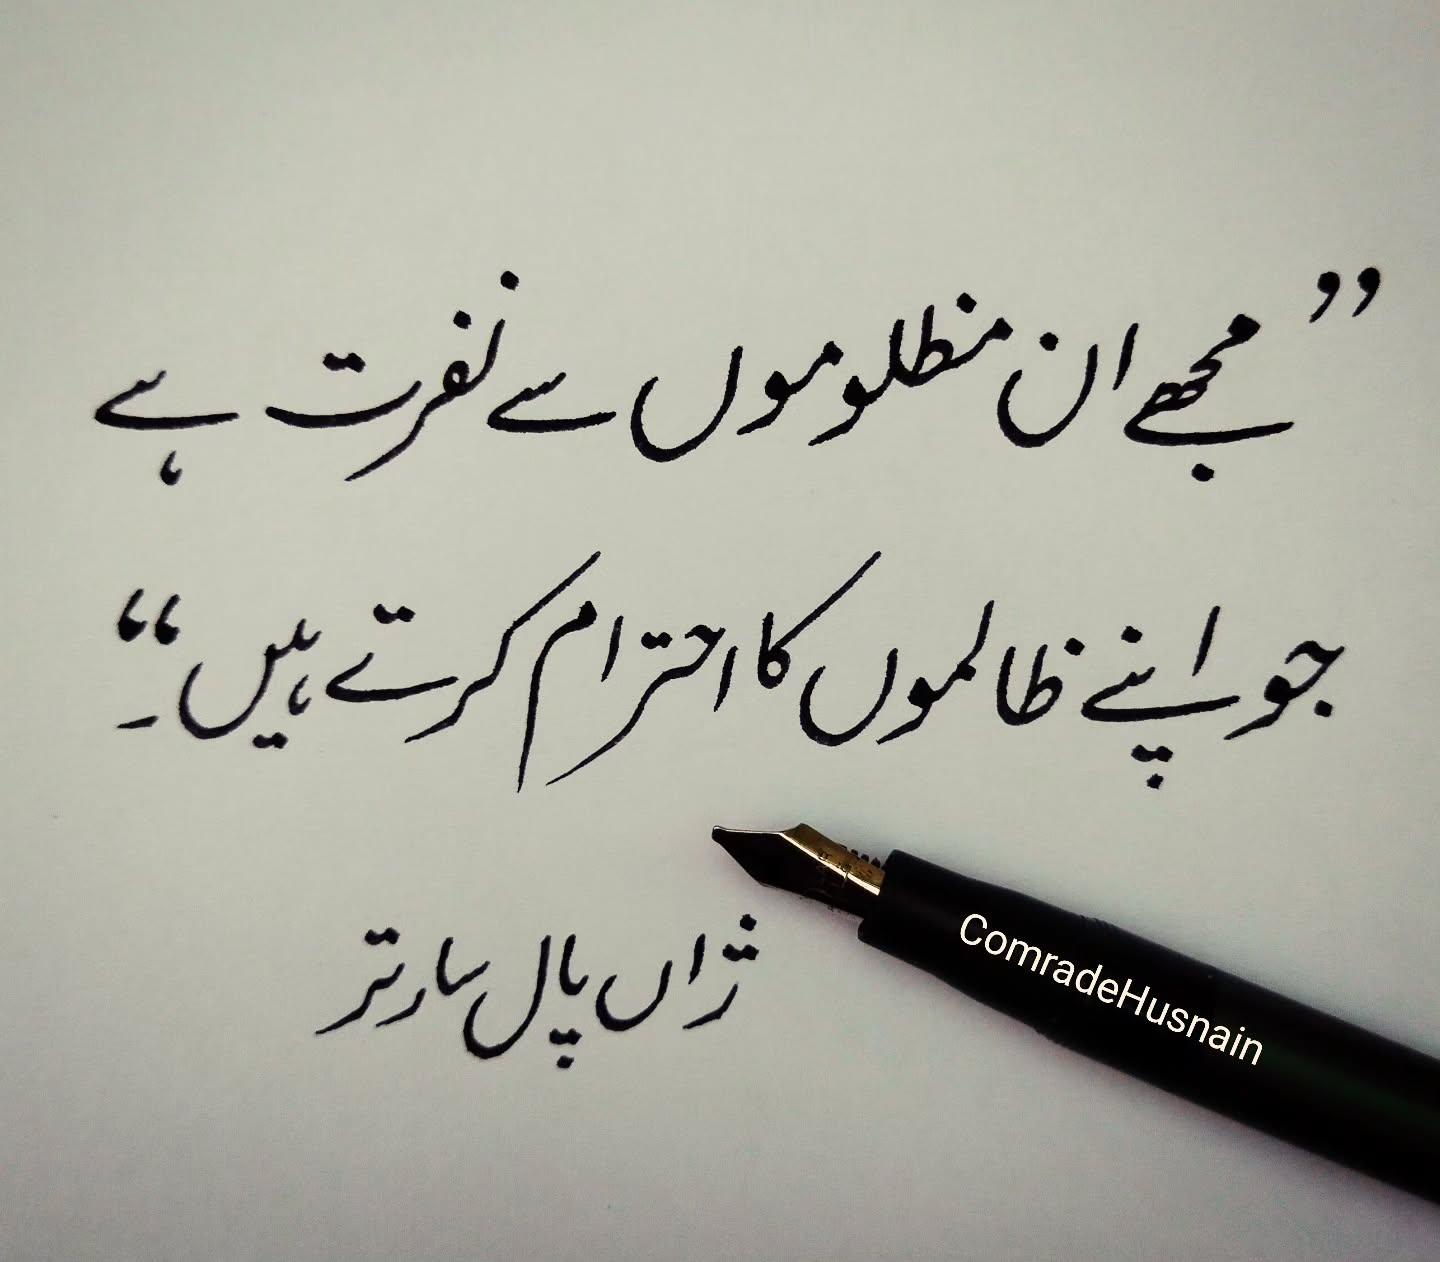 ”مجھے ان مظلوموں سے نفرت ہے
جو اپنے ظالموں کا احترام کرتے ہیں“۔
ژاں پال سارتر
ComradeHusnain